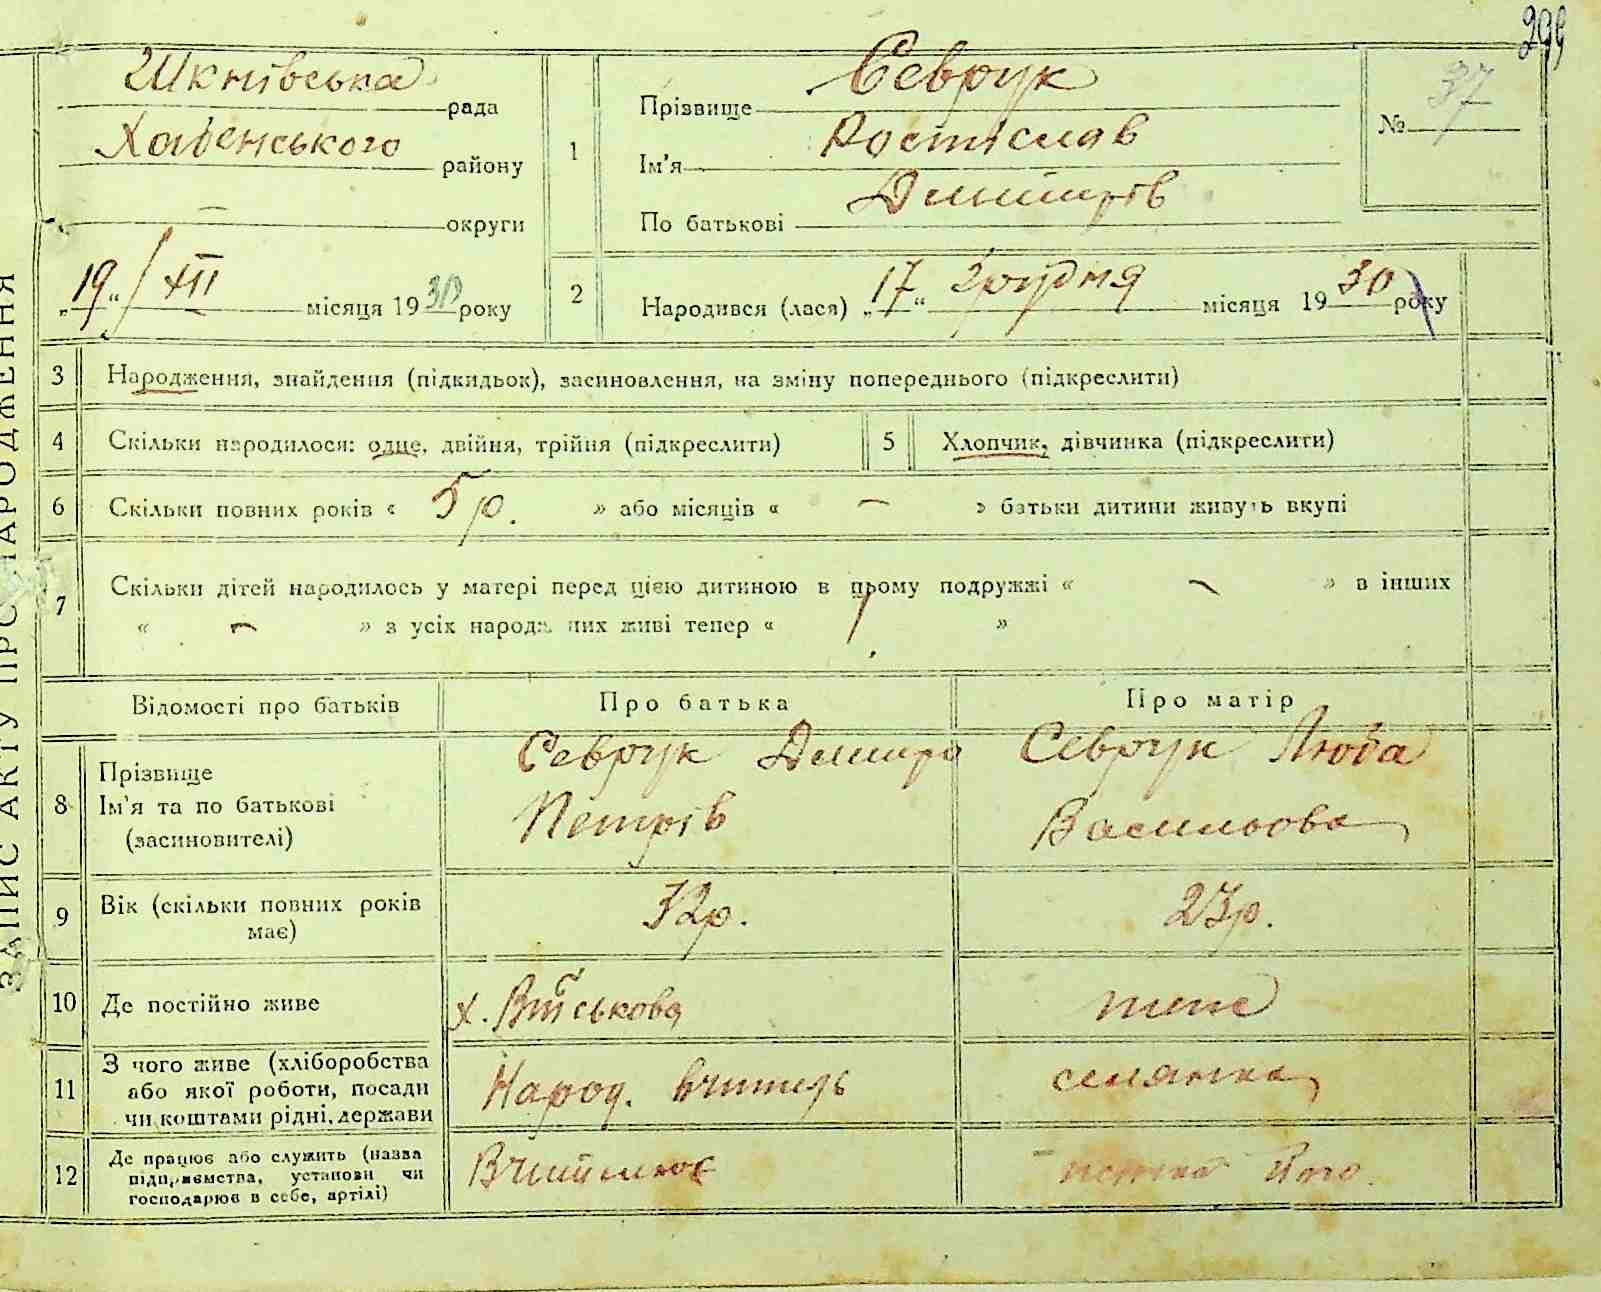 299
Шкнівська рада
Хабенського району
— округи
„19“ / XII місяця 1930 року
1
Прізвище Севрук
Ім'я Ростислав
По батькові Дмитрів
№ 37
2
Народився (лася) „17“ грудня місяця 1930 року
ЗАПИС АКТУ ПРО НАРОДЖЕННЯ
3 Народження, знайдення (підкидьок), засиновлення, на зміну попереднього (підкреслити)
4 Скільки народилося: одне, двійня, трійня (підкреслити)
5 Хлопчик, дівчинка (підкреслити)
6 Скільки повних років « 5 р. » або місяців « — » батьки дитини живуть вкупі
7 Скільки дітей народилось у матері перед цією дитиною в цьому подружжі « — » в інших
« — » з усіх народжених живі тепер « 1 »
Відомості про батьків Про батька Про матір
8 Прізвище
Ім'я та по батькові
(засиновителі)
Севрук Дмитро
Петрів
Севрук Люба
Васильова
9 Вік (скільки повних років
має)
32р.
23р.
10 Де постійно живе
х. Військова
теж
11 З чого живе (хліборобства
або якої роботи, посади
чи коштами рідні, держави
Народ. вчитель
селянка
12 Де працює або служить (назва
підприємства, установи чи
господарює в себе, артілі)
Вчителює